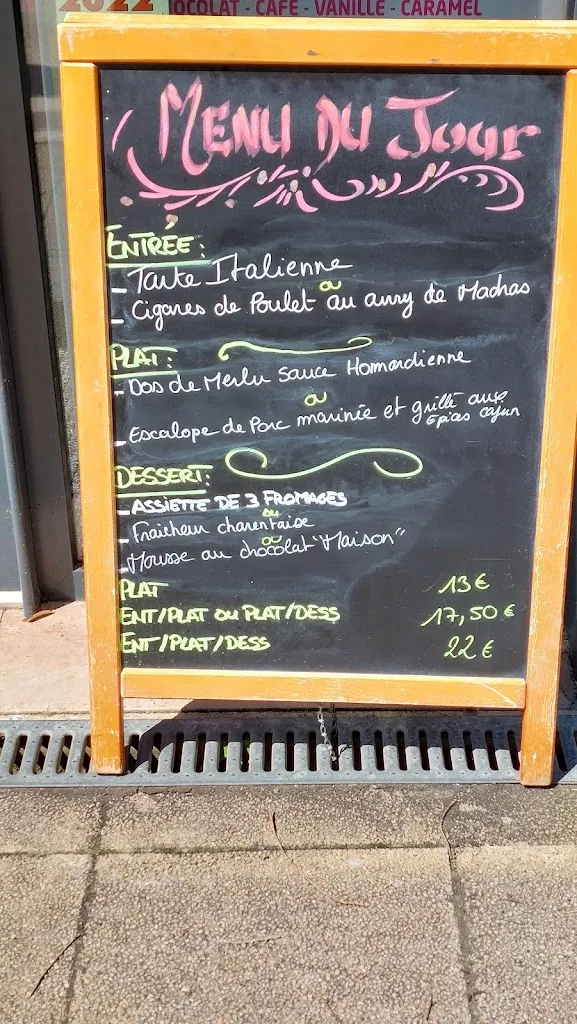 2022
OCOLAT - CAFÉ - VANILLE - CARAMEL
MENU DU JOUR
ENTRÉE:
- Tarte Italienne
ou
- Cigares de Poulet au curry de Madras
PLAT:
- Dos de Merlu sauce Homardienne
ou
- Escalope de Porc marinée et grillé aux épices cajun
DESSERT:
- ASSIETTE DE 3 FROMAGES
ou
- Fraicheur charentaise
ou
- Mousse au chocolat "Maison"
PLAT 13€
ENT/PLAT ou PLAT/DESS 17,50€
ENT/PLAT/DESS 22€